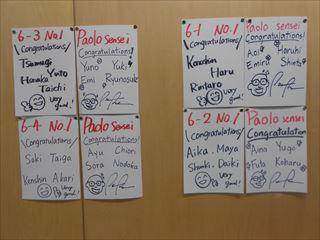 6-3 No.1
Congratulations!
Tsumugi
Yuto
Hanaka
Taichi
very good!
Paolo Sensei
Congratulations!
Yuno Yuki
Emi Ryunosuke
6-1 No.1
Congratulations!
Kenshin
Haru
Rintaro
very good!
Paolo sensei
Congratulations!
Aoi Haruhi
Emiri Shinta
6-4 No.1
Congratulations!
Saki Taiga
Kenshin Akari
very good!
Paolo Sensei
Congratulations!
Ayu Chiori
Sora Nodoka
6-2 No.1
Congratulations!
Aika Maya
Shunki Daiki
very good!
Paolo Sensei
Congratulation
Aino Yugo
Futa Koharu